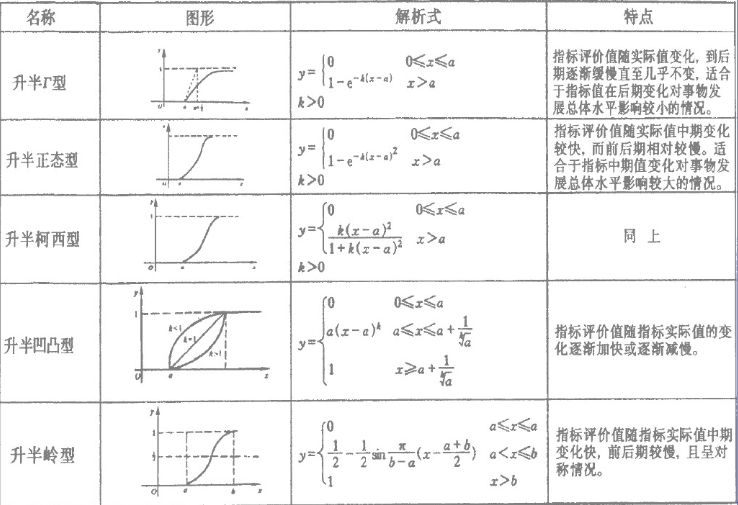 名称 图形 解析式 特点
升半Γ型
y={0 0≤x≤a
1-e^{-k(x-a)} x>a
k>0
指标评价值随实际值变化，到后
期逐渐缓慢直至几乎不变，适合
于指标值在后期变化对事物发
展总体水平影响较小的情况。
升半正态型
y={0 0≤x≤a
1-e^{-k(x-a)^2} x>a
k>0
指标评价值随实际值中期变化
较快，而前后期相对较慢。适
合于指标中期值变化对事物发
展总体水平影响较大的情况。
升半柯西型
y={0 0≤x≤a
k(x-a)^2/1+k(x-a)^2 x>a
k>0
同 上
升半凹凸型
y
1
k<1
k=1
k>1
O a x
y={0 0≤x≤a
a(x-a)^k a≤x≤a+1/ᵏ√a
1 x≥a+1/ᵏ√a
指标评价值随指标实际值的变
化逐渐加快或逐渐减慢。
升半岭型
y={0 a≤x≤a
1/2-1/2 sin π/b-a (x-a+b/2) a<x≤b
1 x>b
指标评价值随指标实际值中期
变化快，前后期较慢，且呈对
称情况。